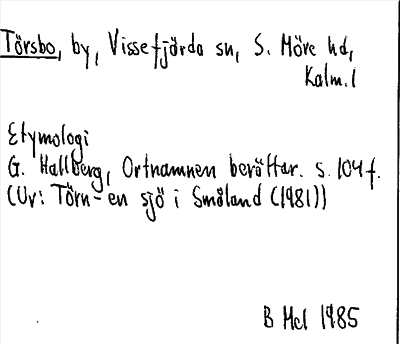 Törsbo, by, Vissefjärda sn, S. Möre hd,
Kalm. l
Etymologi
G. Hallberg, Ortnamnen berättar. s. 104 f.
(Ur: Törn - en sjö i Småland (1981))
B Mcl 1985